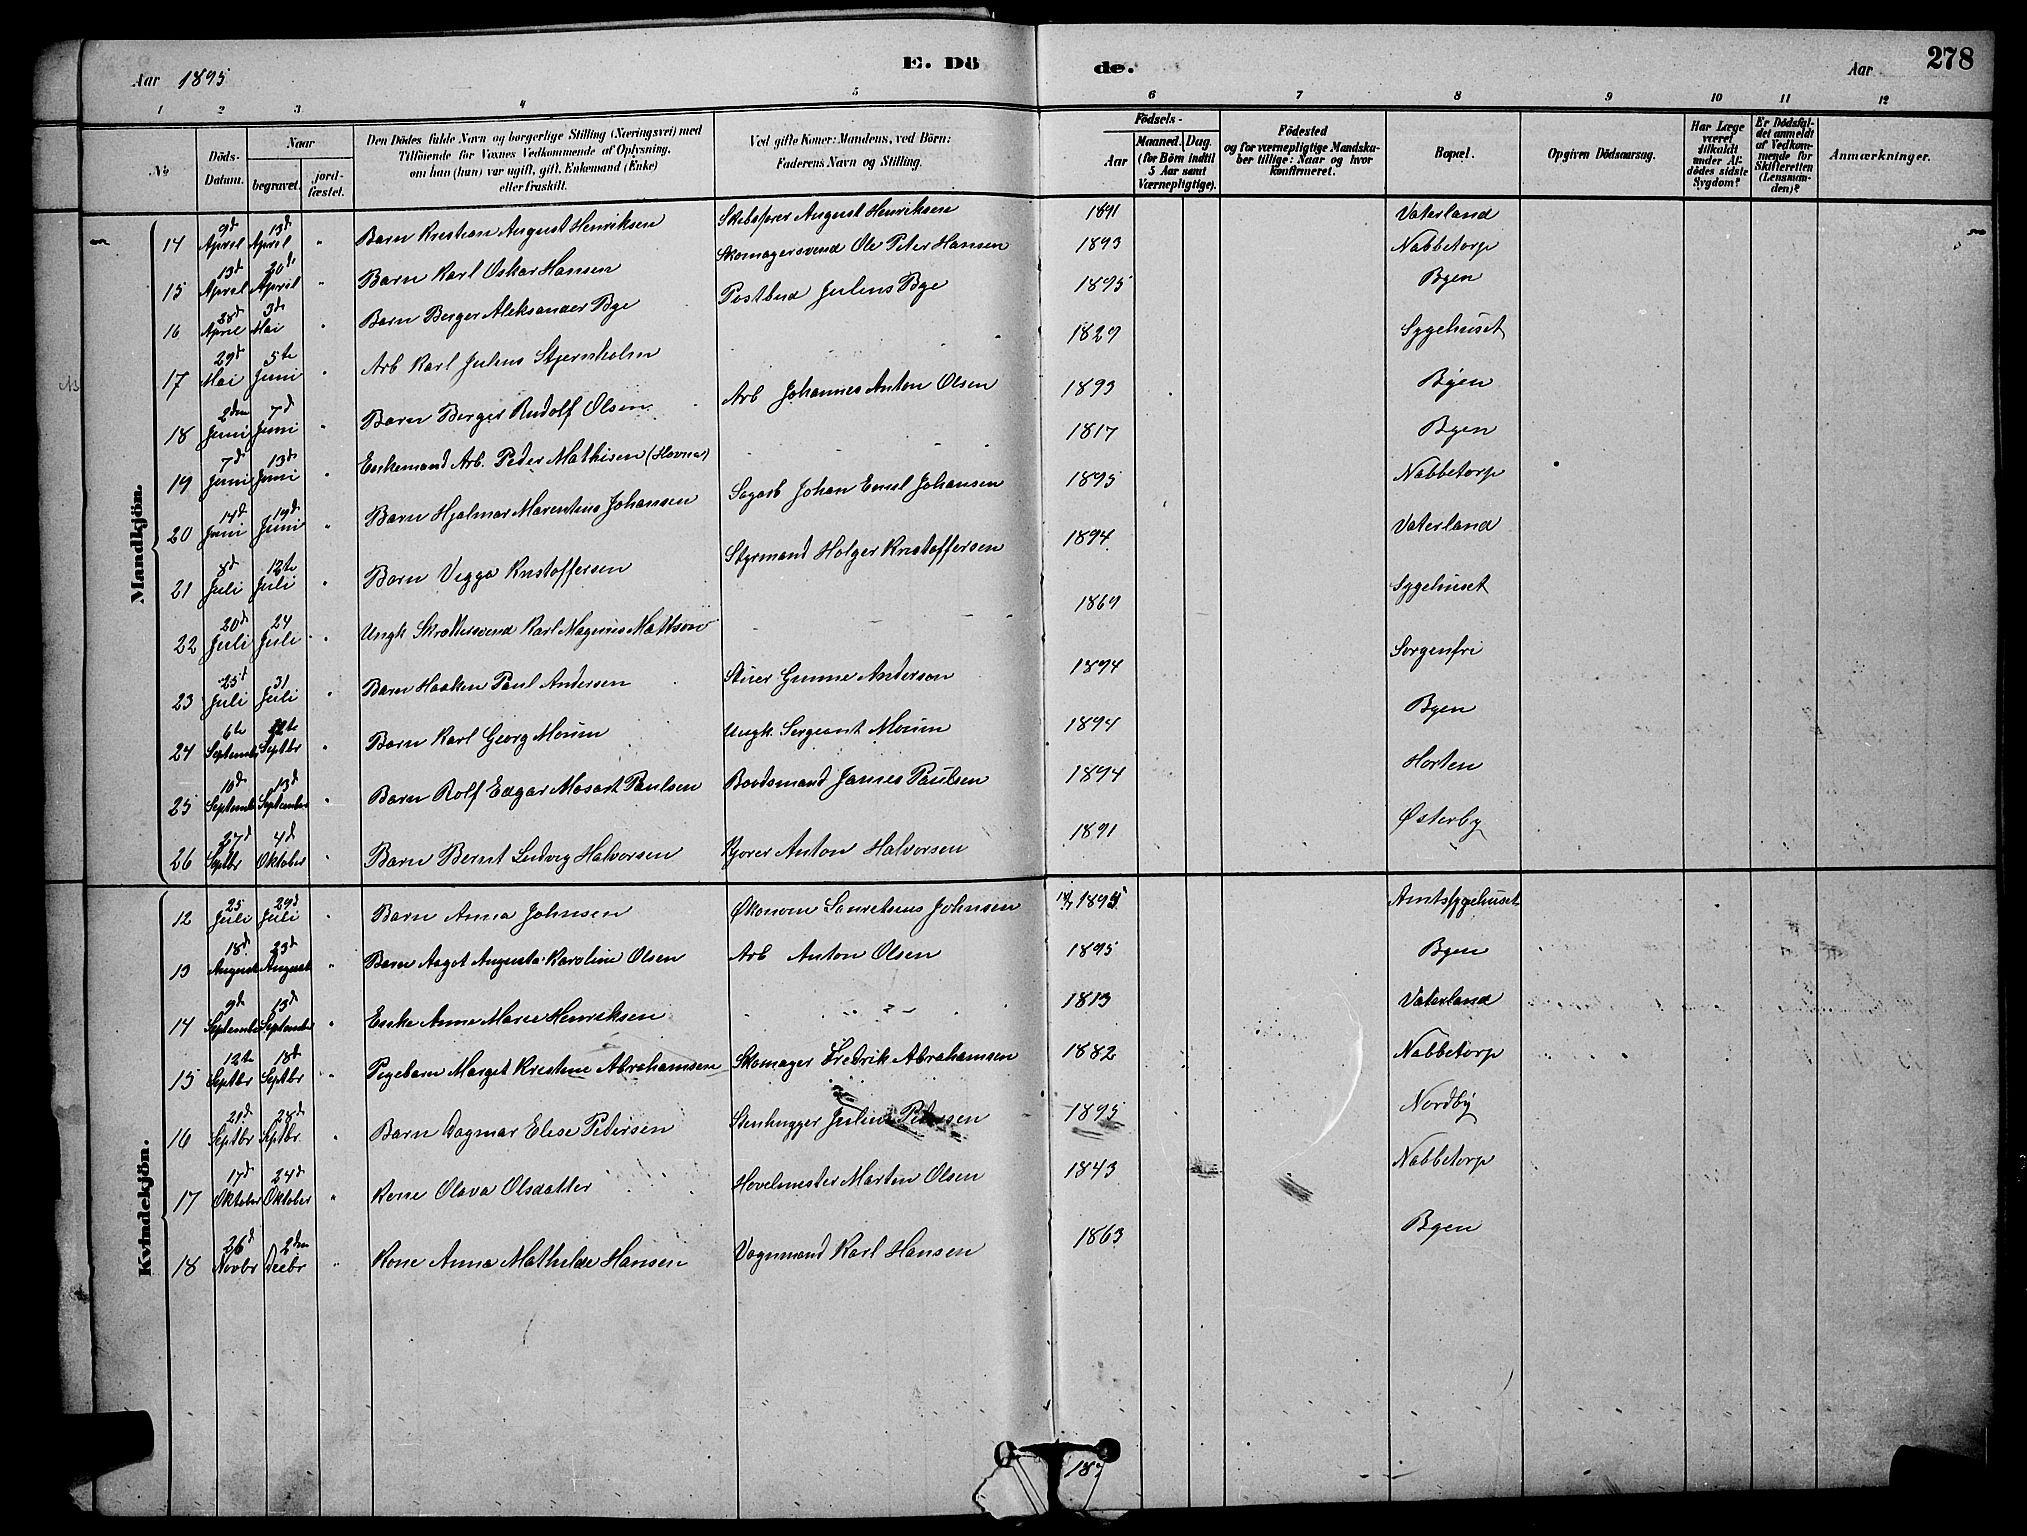 Aar 1895 E. Dö de. Aar 278
1 2 3 4 5 6 7 8 9 10 11 12
№ Döds-Datum. Naar begravet. jordfæstet. Den Dödes fulde Navn og borgerlige Stilling (Næringsvei) med Tilföiende for Voxnes Vedkommende af Oplysning, om han (hun) var ugift, gift, Enkemand (Enke) eller fraskilt. Ved gifte Koner: Mandens, ved Börn: Faderens Navn og Stilling. Födsels- Aar Maaned. Dag. (for Børn indtil 5 Aar samt Værnepligtige). Födested og for værnepligtige Mandskaber tillige: Naar og hvor konfirmeret. Bopæl. Opgiven Dödsaarsag. Har Læge været tilkaldt under Afdödes sidste Sygdom? Er Dödsfaldet anmeldt af Vedkommende for Skifteretten (Lensmanden)? Anmærkninger.
Mandkjön.
14 9d April 13d April " Barn Kristian August Henriksen August Henriksen 1891 Vaterland
15 13d April 20de April " Barn Karl Oskar Hansen Skomagersvend Ole Peter Hansen 1893 Nabbetorp
16 28d April 3de Mai " Barn Berger Aleksander Bye Postbud Julius Bye 1895 Byen
17 29d Mai 5te Juni " Arb Karl Julius Stjernholm 1829 Sygehuset
18 2den Juni 7d Juni " Barn Berger Rudolf Olsen Arb Johannes Anton Olsen 1893 Byen
19 7d Juni 13de Juni " Enkemand Arb. Peder Mathisen (Hovna) 1817 Byen
20 14d Juni 19d Juni " Barn Hjalmar Marentius Johansen Sagarb Johan Emil Johansen 1895 Nabbetorp
21 8d Juli 12te Juli " Barn Viggo Kristoffersen Styrmand Holger Kristoffersen 1894 Vaterland
22 20d Juli 24 Juli " Ungk Karl Magnus Mattson 1869 Sygehuset
23 25d Juli 31 Juli " Barn Haaken Paul Andersen Gunne Anderson 1894 Sorgenfri
24 6te September Septbr " Barn Karl Georg Moum Ungk Sergeant Moum 1894 Byen
25 10d September 13d September " Barn Rolf Edgar Mosart Paulsen Baadsmand James Paulsen 1894 Horten
26 27d Septbr 4d Oktober " Barn Bernt Ludvig Halvorsen Kjører Anton Halvorsen 1891 Østerby
Kvindekjön.
12 25 Juli 29d Juli " Barn Anna Johnsen Økonom Lauretsius Johnsen 1895 Amtssygehuset
13 18d August 23d August " Barn Aagot Augusta Karoline Olsen Arb Anton Olsen 1895 Byen
14 9de September 13d September " Enke Anne Marie Henriksen 1813 Vaterland
15 12te Septbr 18d Septbr " Pigebarn Marget Kristine Abrahamsen Skomager Fredrik Abrahamsen 1882 Nabbetorp
16 21d Septbr 28d Septbr " Barn Dagmar Elise Pedersen Stenhugger Julius Pedersen 1895 Nordby
17 17d Oktober 24d Oktober " Kone Olava Olsdatter Høvelmester Martin Olsen 1843 Nabbetorp
18 26d Novbr 2den Decbr " Kone Anna Mathilde Hansen Vognmand Karl Hansen 1863 Byen
187